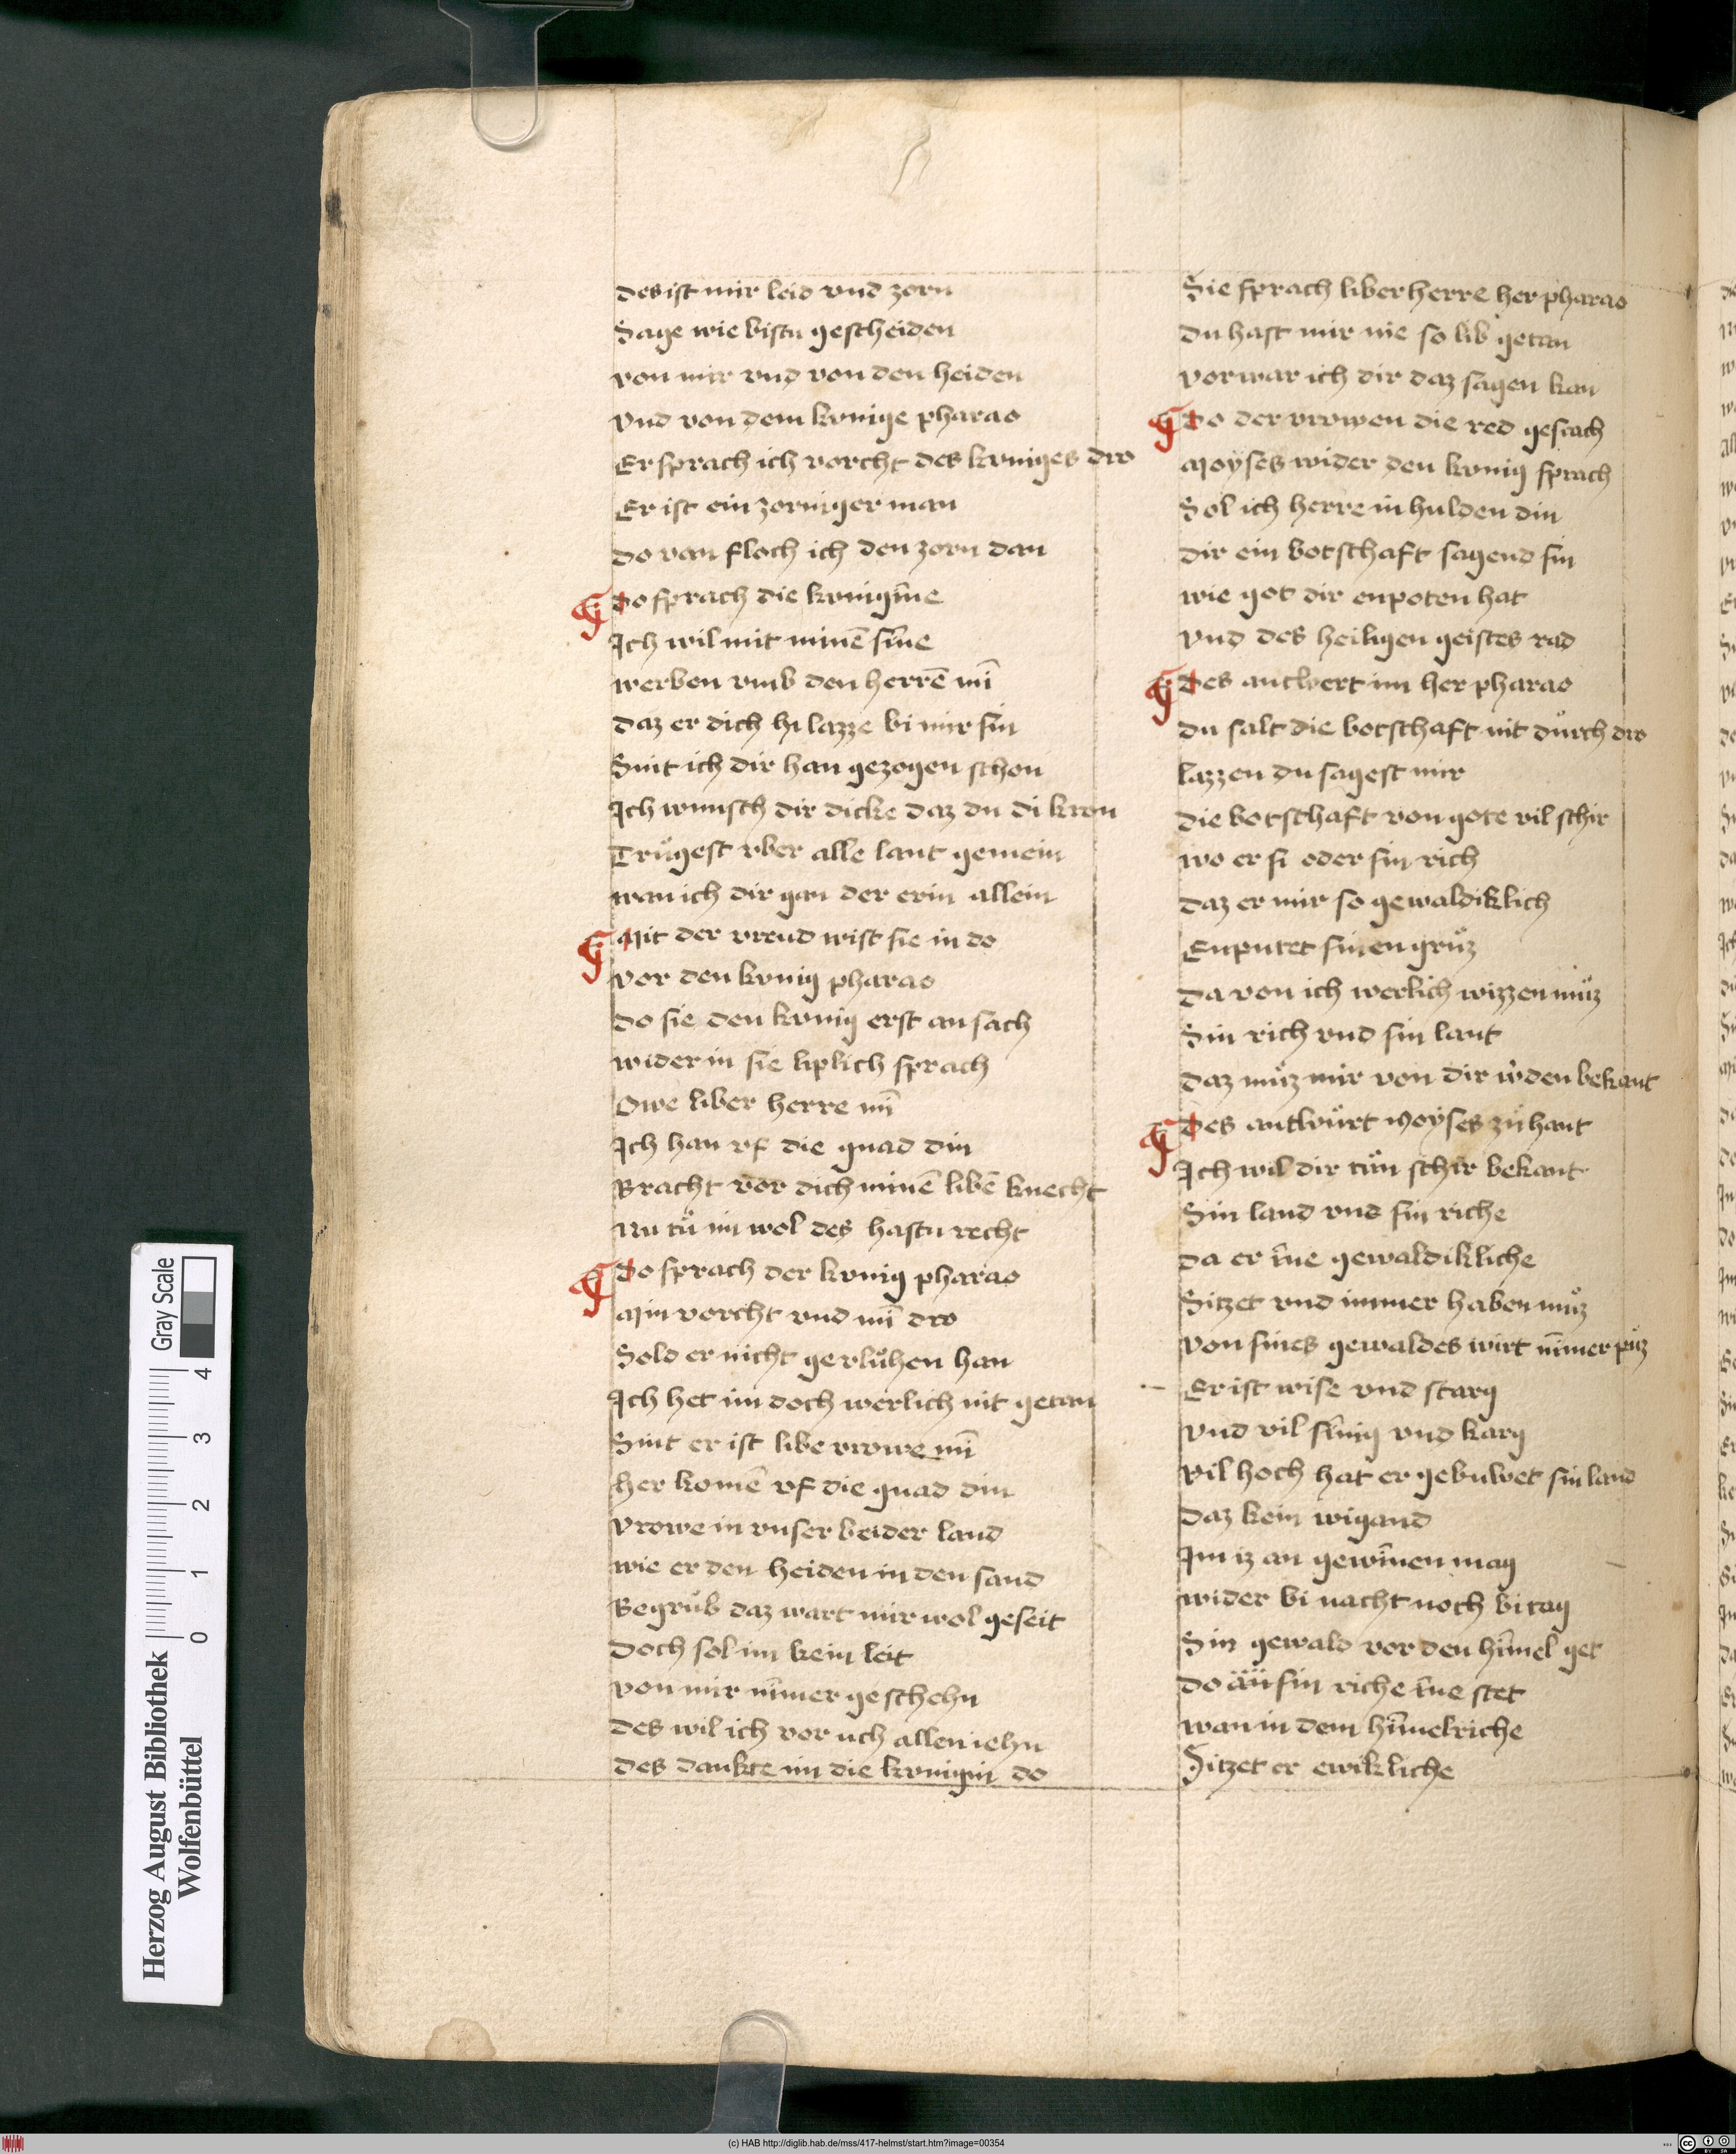 des ist mir leid vnd zorn
Sage wie bistu gescheiden
von mir vnd von den heiden
vnd von dem kvnige pharao
Er sprach ich vorcht des kvniges dro
Er ist ein zorniger man
do van floch ich den zorn dan
do sprach die kvnigīne
Ich wil mit minē sīne
werben vmb den herrē mī
daz er dich hi lazze bi mir sin
Sint ich dir han gezogen schon
Ich wunsch dir dicke daz du di kron
Trůgest vber alle lant gemein
wan ich dir gan der erin allein
Mit der vreud wist sie in do
vor den kvnig pharao
do sie den kvnig erst an sach
wider in sie liplich sprach
Owe liber herre mī
Ich han vf die gnad din
Bracht vor dich minē libē knecht
Nu tů im wol des hastu recht
do sprach der kvnig pharao
Min vorcht vnd mī dro
Sold er nicht gevlůhen han
Ich het im doch werlich nit getan
Sint er ist libe vrowe mī
her komē vf die gnad din
Vrowe in vnser beider land
wie er den heiden in den sand
Begrůb daz wart mir wol geseit
Doch sol im kein leit
von mir nīmer geschehn
des wil ich vor uch allen iehn
des dankte im die kvnigin do
Sie sprach liber herre her pharao
du hast mir nie so lib getan
vorwar ich dir daz sagen kan
do der vrowen die red gescach
Moyses wider den kvnig sprach
Sol ich herre in hulden din
dir ein botschaft sagend sin
wie got dir enpoten hat
vnd des heiligen geistes rad
des antwert im her pharao
du salt die botschaft nit důrch dro
lazzen du sagest mir
die botschaft von gote vil schir
wo er si oder sin rich
daz er mir so gewaldiklich
Enputet sinen grůz
da von ich werlich wizzen můz
Sin rich vnd sin lant
daz můz mir von dir w̓den bekant
des antwůrt Moyses zů hant
Ich wil dir tůn schir bekant
Sin land vnd sin riche
da er īne gewaldikliche
Sitzet vnd immer haben můz
von sines gewaldes wirt nīmer půz
Er ist wise vnd starg
vnd vil sīnig vnd karg
vil hoch hat er gebuwet sin land
Daz kein wigand
Im iz an gewīnen mag
wider bi nacht noch bi tag
Sin gewald vor den hīmel get
do sin riche īne stet
wan in dem hīmelriche
Sitzet er ewikliche
Herzog August Bibliothek
Wolfenbüttel
0 1 2 3 4
Gray Scale
(c) HAB http://diglib.hab.de/mss/417-helmst/start.htm?image=00354